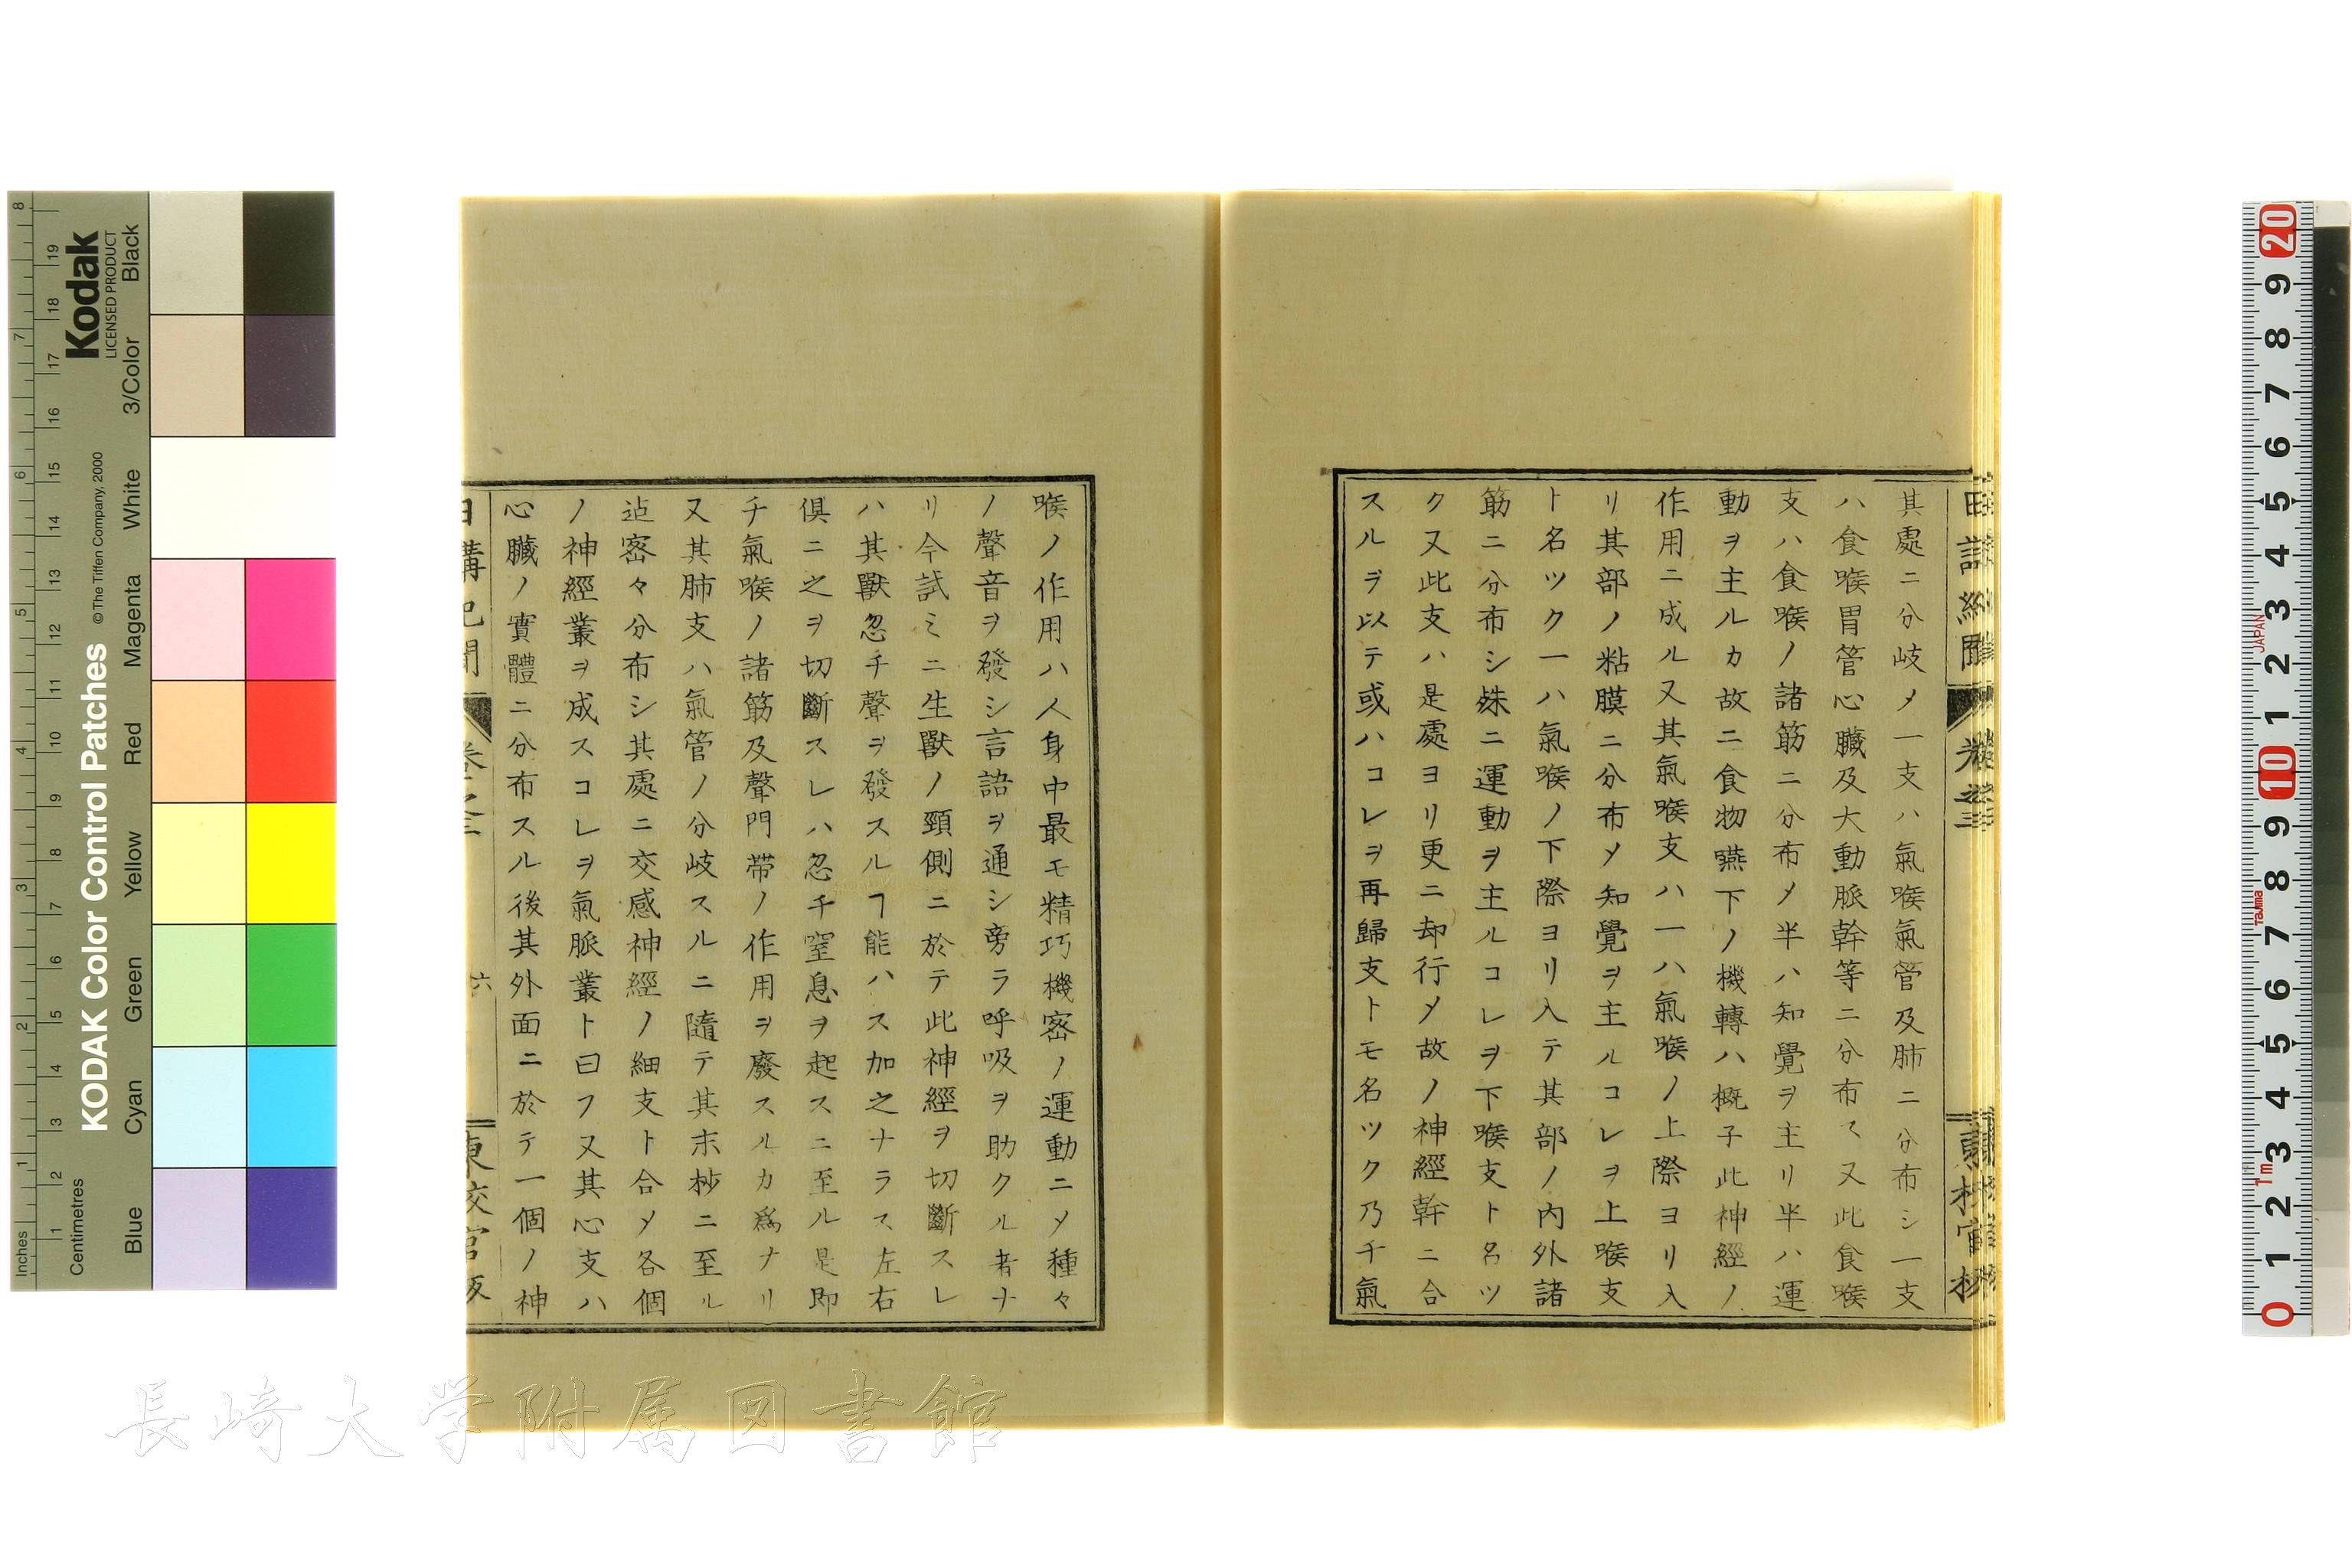 其處ニ分岐〆一支ハ氣喉氣管及肺ニ分布シ一支
ハ食喉胃管心臟及大動脈幹等ニ分布ス又此食喉
支ハ食喉ノ諸筋ニ分布〆半ハ知覺ヲ主リ半ハ運
動ヲ主ルカ故ニ食物嚥下ノ機轉ハ概子此神經ノ
作用ニ成ル又其氣喉支ハ一ハ氣喉ノ上際ヨリ入
リ其部ノ粘膜ニ分布〆知覺ヲ主ルコレヲ上喉支
ト名ツク一ハ氣喉ノ下際ヨリ入テ其部ノ内外諸
筋ニ分布シ殊ニ運動ヲ主ルコレヲ下喉支ト名ツ
ク又此支ハ是處ヨリ更ニ却行〆故ノ神經幹ニ合
スルヲ以テ或ハコレヲ再歸支トモ名ツク乃チ氣
喉ノ作用ハ人身中最モ精巧機密ノ運動ニ〆種々
ノ聲音ヲ發シ言語ヲ通シ旁ラ呼吸ヲ助クル者ナ
リ今試ミニ生獸ノ頸側ニ於テ此神經ヲ切斷スレ
ハ其獸忽チ聲ヲ發スルヿ能ハス加之ナラス左右
俱ニ之ヲ切斷スレハ忽チ窒息ヲ起スニ至ル是即
チ氣喉ノ諸筋及聲門帶ノ作用ヲ廢スルカ爲ナリ
又其肺支ハ氣管ノ分岐スルニ隨テ其末杪ニ至ル
迠密々分布シ其處ニ交感神經ノ細支ト合〆各個
ノ神經叢ヲ成スコレヲ氣脈叢ト曰フ又其心支ハ
心臟ノ實體ニ分布スル後其外面ニ於テ一個ノ神
日講記聞 卷之三 六 東校官版
長崎大学附属図書館
KODAK Color Control Patches
© The Tiffen Company, 2000
Kodak
LICENSED PRODUCT
Inches
Centimetres
Blue Cyan Green Yellow Red Magenta White 3/Color Black